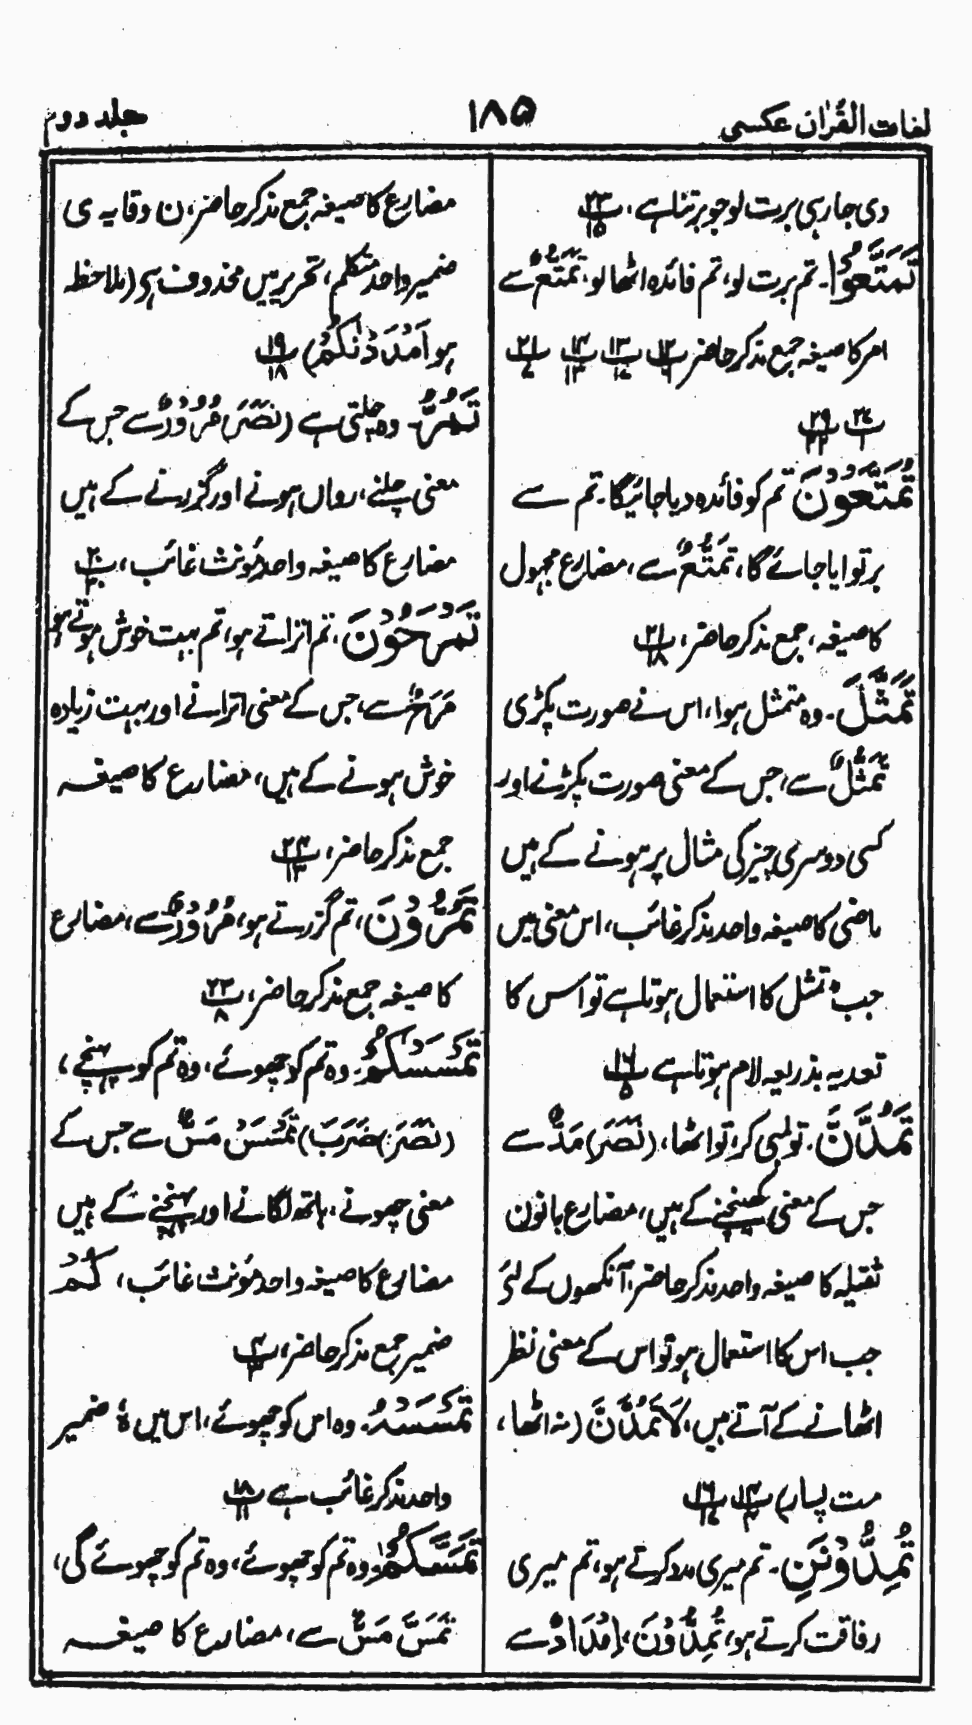 لغات القرآن عکسی
۱۸۵
جلد دوم
دی جارہی برت لو جو برتنا ہے،
تَمَتَّعُوْا۔ تم برت لو، تم فائدہ اٹھالو، تَمَتُّعٌ سے
امر کا صیغہ جمع مذکر حاضر
تُمَتَّعُوْنَ تم کو فائدہ دیا جائیگا۔ تم سے
برتوایا جائے گا، تَمَتُّعٌ سے، مضارع مجہول
کا صیغہ، جمع مذکر حاضر، ۲۱ ۱۸
تَمَثَّلَ۔ وہ متمثل ہوا، اس نے صورت پکڑی
تَمَثُّلٌ سے، جس کے معنی صورت پکڑنے اور
کسی دوسری چیز کی مثال پر ہونے کے ہیں
ماضی کا صیغہ واحد مذکر غائب، اس معنی میں
جب تمثل کا استعمال ہوتا ہے تو اس کا
تعدیہ بذریعہ لام ہوتا ہے ۱۶ ۵
تَمُدَّنَّ۔ تو لمبی کر، تو اٹھا، (نَصَرَ) مَدٌّ سے
جس کے معنی کھینچنے کے ہیں، مضارع بانون
ثقیلہ کا صیغہ واحد مذکر حاضر، آنکھوں کے لئے
جب اس کا استعمال ہو تو اس کے معنی نظر
اٹھانے کے آتے ہیں، لَا تَمُدَّنَّ (نہ اٹھا،
مت پسار)
تُمِدُّوْنَنِ۔ تم میری مدد کرتے ہو، تم میری
رفاقت کرتے ہو، تُمِدُّوْنَ، اِمْدَادٌ سے
مضارع کا صیغہ جمع مذکر حاضر، ن وقایہ ی
ضمیر واحد متکلم، تحریر میں محذوف ہی (ملاحظہ
ہو اَمْدَدْنٰکُمْ) ۱۹ ۱۸
تَمُرُّ۔ وہ چلتی ہے (نَصَرَ) مُرُوْرٌ سے جس کے
معنی چلنے، رواں ہونے اور گزرنے کے ہیں
مضارع کا صیغہ واحد مؤنث غائب،
تَمْرَحُوْنَ، تم اتراتے ہو، تم بہت خوش ہوتے ہو
مَرَحٌ سے، جس کے معنی اترانے اور بہت زیادہ
خوش ہونے کے ہیں، مضارع کا صیغہ
جمع مذکر حاضر،
تَمُرُّوْنَ، تم گزرتے ہو، مُرُوْرٌ سے، مضارع
کا صیغہ جمع مذکر حاضر، ۲۳ ۸
تَمْسَسْکُمْ۔ وہ تم کو چھوئے، وہ تم کو پہنچے،
(نَصَرَ) (ضَرَبَ) تَمْسَسْ مَسٌّ سے جس کے
معنی چھونے، ہاتھ لگانے اور پہنچنے کے ہیں
مضارع کا صیغہ واحد مؤنث غائب، کُمْ
ضمیر جمع مذکر حاضر،
تَمْسَسْہُ۔ وہ اس کو چھوئے، اس میں ہٗ ضمیر
واحد مذکر غائب ہے ۱۸ ۱۱
تَمَسَّکُمْ وہ تم کو چھوئے، وہ تم کو چھوئے گی،
تَمَسَّ مَسٌّ سے، مضارع کا صیغہ